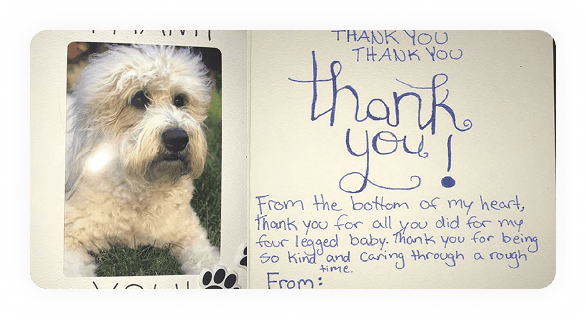 THANK
YOU!!
THANK YOU
THANK YOU
thank
you!
From the bottom of my heart,
thank you for all you did for my
four legged baby. Thank you for being
so kind and caring through a rough
time.
From: